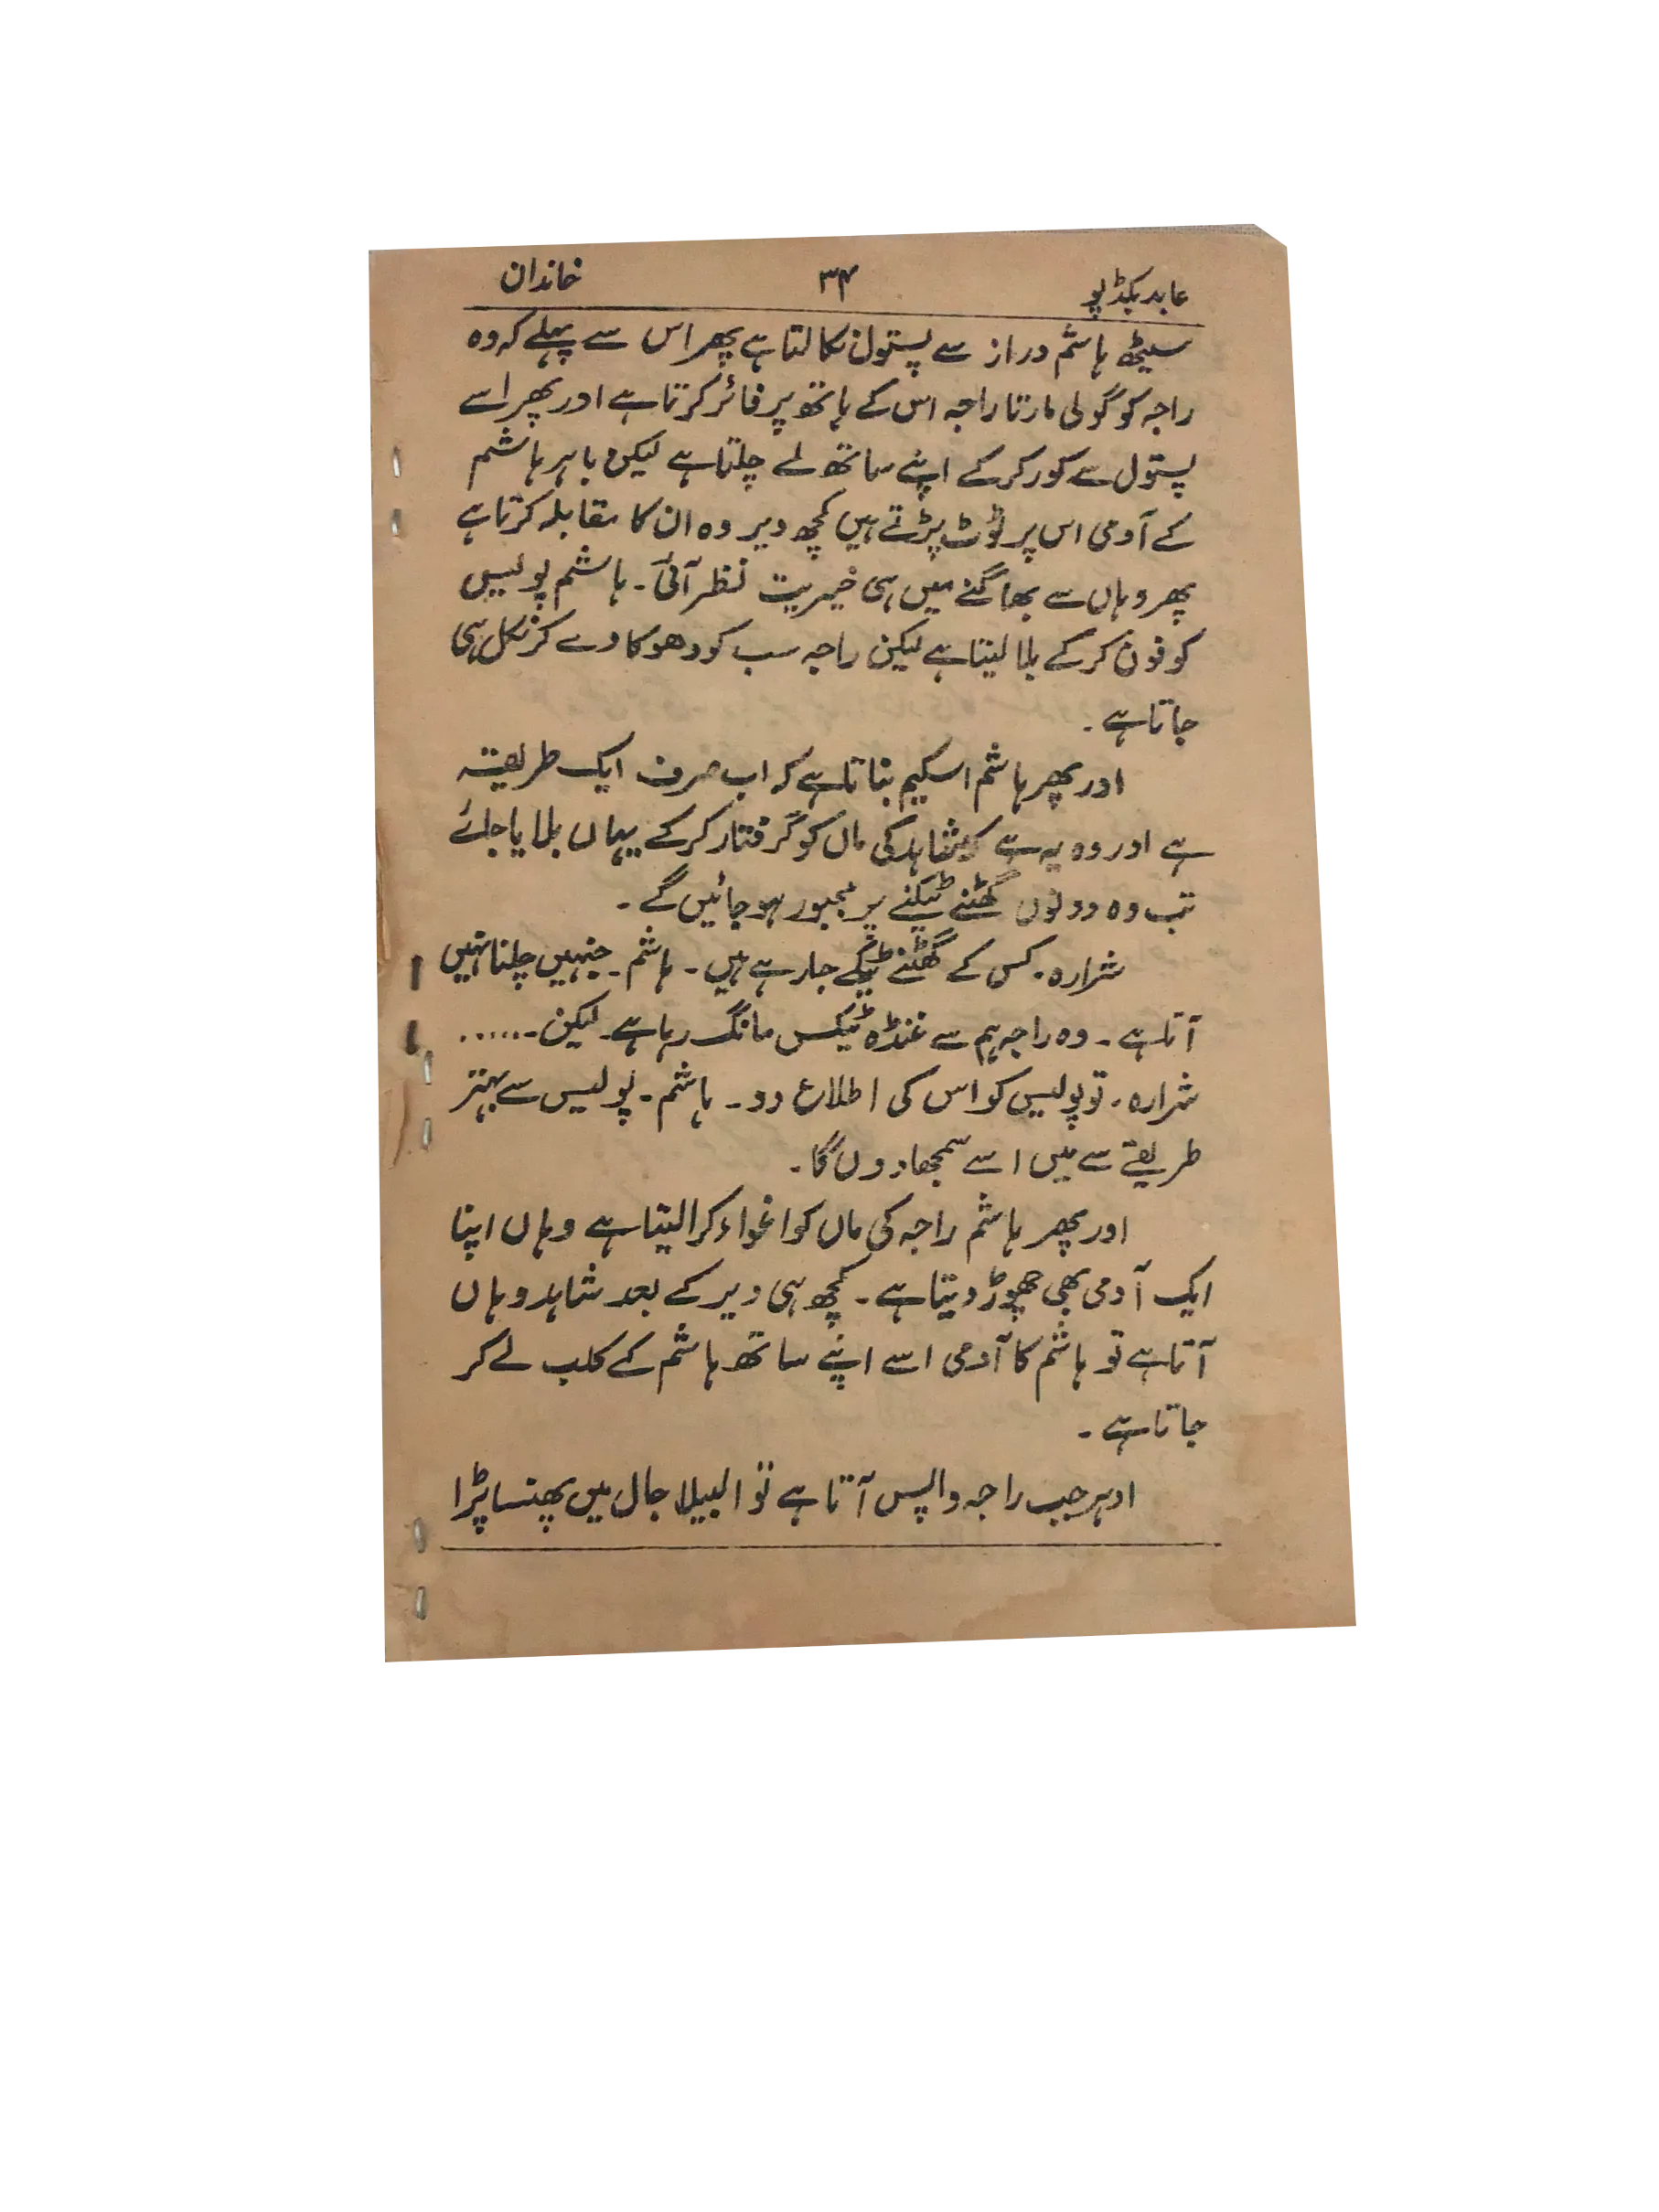 عابد بکڈپو ۳۴ خاندان
سیٹھ ہاشم دراز سے پستول نکالتا ہے پھر اس سے پہلے کہ وہ
راجہ کو گولی مارتا راجہ اس کے ہاتھ پر فائر کرتا ہے اور پھر اسے
پستول سے کور کر کے اپنے ساتھ لے چلتا ہے لیکن باہر ہاشم
کے آدمی اس پر ٹوٹ پڑتے ہیں کچھ دیر وہ ان کا مقابلہ کرتا ہے
پھر وہاں سے بھاگنے میں ہی خیریت نظر آئی۔ ہاشم پولیس
کو فون کر کے بلا لیتا ہے لیکن راجہ سب کو دھوکا دے کر نکل ہی
جاتا ہے۔
اور پھر ہاشم اسکیم بناتا ہے کہ اب صرف ایک طریقہ
ہے اور وہ یہ ہے کہ شاہد کی ماں کو گرفتار کر کے یہاں بلایا جائے
تب وہ دونوں گھٹنے ٹیکنے پر مجبور ہو جائیں گے۔
شرارہ۔ کس کے گھٹنے ٹیکے جا رہے ہیں۔ ہاشم۔ جنہیں چلنا نہیں
آتا ہے۔ وہ راجہ ہم سے غنڈہ ٹیکس مانگ رہا ہے۔ لیکن۔......
شرارہ۔ تو پولیس کو اس کی اطلاع دو۔ ہاشم۔ پولیس سے بہتر
طریقے سے میں اسے سمجھا دوں گا۔
اور پھر ہاشم راجہ کی ماں کو اغواء کرا لیتا ہے وہاں اپنا
ایک آدمی بھی چھوڑ دیتا ہے۔ کچھ ہی دیر کے بعد شاہد وہاں
آتا ہے تو ہاشم کا آدمی اسے اپنے ساتھ ہاشم کے کلب لے کر
جاتا ہے۔
ادہر جب راجہ واپس آتا ہے تو البیلا جال میں پھنسا پڑا